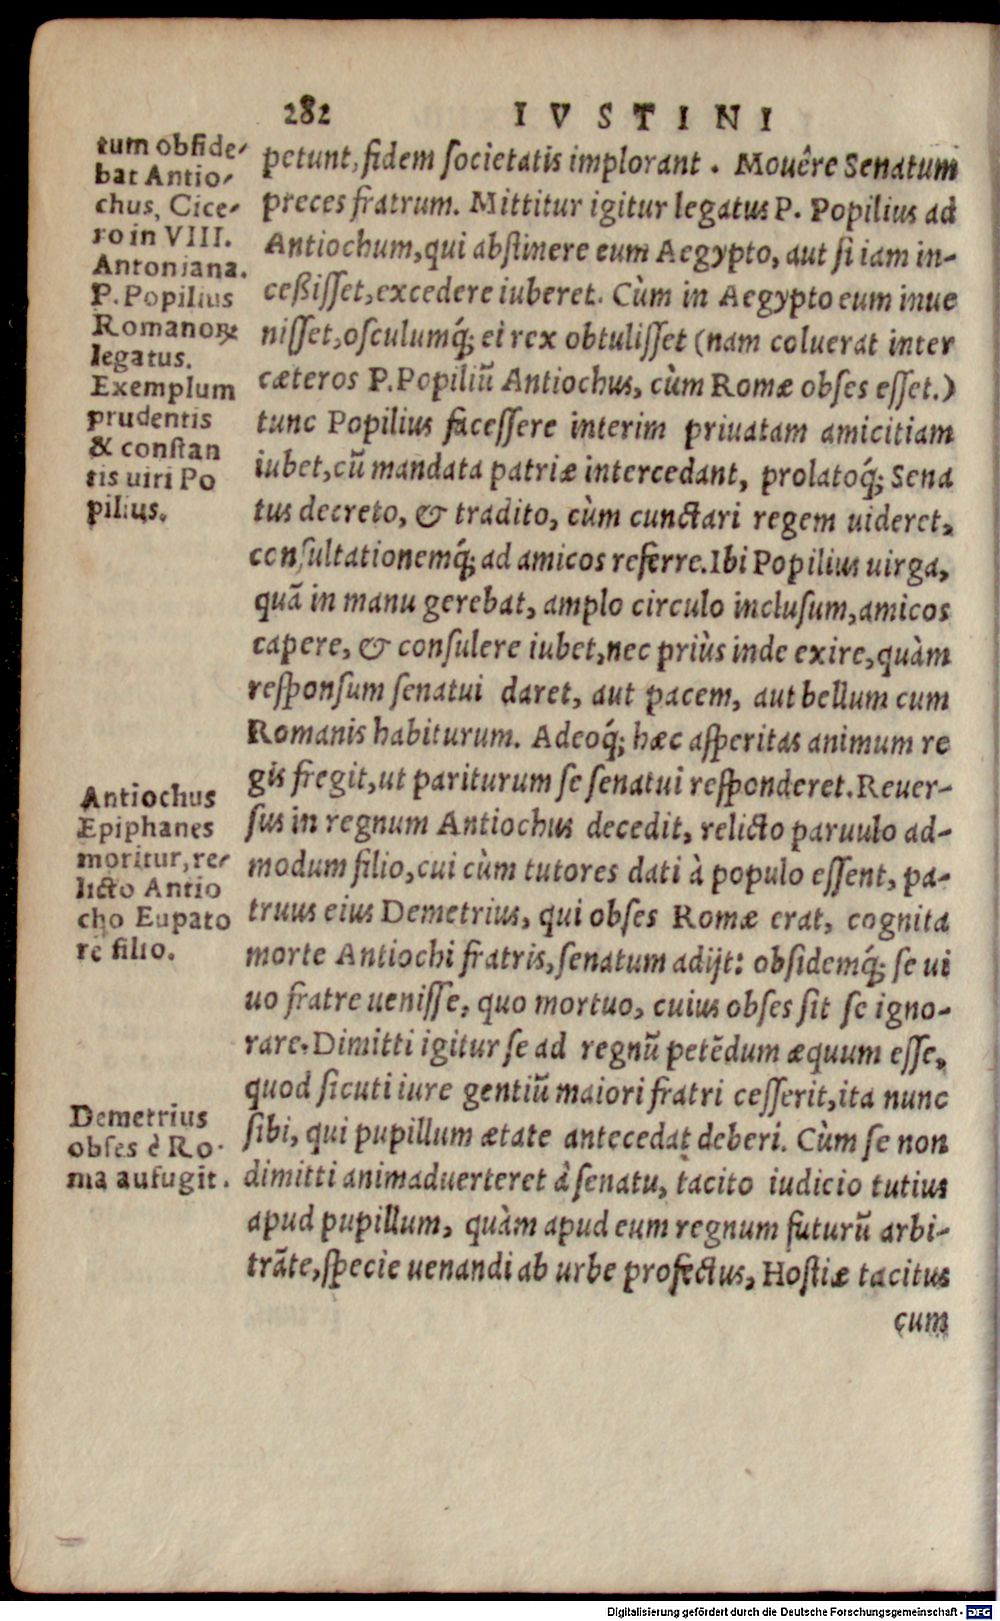 282 IVSTINI
tum obside-
bat Antio-
chus, Cice-
ro in VIII.
Antoniana.
P. Popilius
Romanoꝝ
legatus.
Exemplum
prudentis
& constan
tis uiri Po
pilius.
Antiochus
Epiphanes
moritur, re-
licto Antio
cho Eupato
re filio.
Demetrius
obses è Ro-
ma aufugit.
petunt, fidem societatis implorant. Mouêre Senatum
preces fratrum. Mittitur igitur legatus P. Popilius ad
Antiochum, qui abstinere eum Aegypto, aut si iam in-
ceßisset, excedere iuberet. Cùm in Aegypto eum inue
nisset, osculumq́; ei rex obtulisset (nam coluerat inter
cæteros P. Popiliũ Antiochus, cùm Romæ obses esset.)
tunc Popilius facessere interim priuatam amicitiam
iubet, cũ mandata patriæ intercedant, prolatoq́; Sena
tus decreto, & tradito, cùm cunctari regem uideret,
consultationemq́; ad amicos referre. Ibi Popilius uirga,
quã in manu gerebat, amplo circulo inclusum, amicos
capere, & consulere iubet, nec priùs inde exire, quàm
responsum senatui daret, aut pacem, aut bellum cum
Romanis habiturum. Adeoq́; hæc asperitas animum re
gis fregit, ut pariturum se senatui responderet. Reuer-
sus in regnum Antiochus decedit, relicto paruulo ad-
modum filio, cui cùm tutores dati à populo essent, pa-
truus eius Demetrius, qui obses Romæ erat, cognita
morte Antiochi fratris, senatum adijt: obsidemq́; se ui
uo fratre uenisse, quo mortuo, cuius obses sit se igno-
rare. Dimitti igitur se ad regnũ petẽdum æquum esse,
quod sicuti iure gentiũ maiori fratri cesserit, ita nunc
sibi, qui pupillum ætate antecedat deberi. Cùm se non
dimitti animaduerteret à senatu, tacito iudicio tutius
apud pupillum, quàm apud eum regnum futurũ arbi-
trãte, specie uenandi ab urbe profectus, Hostiæ tacitus
cum
Digitalisierung gefördert durch die Deutsche Forschungsgemeinschaft - DFG